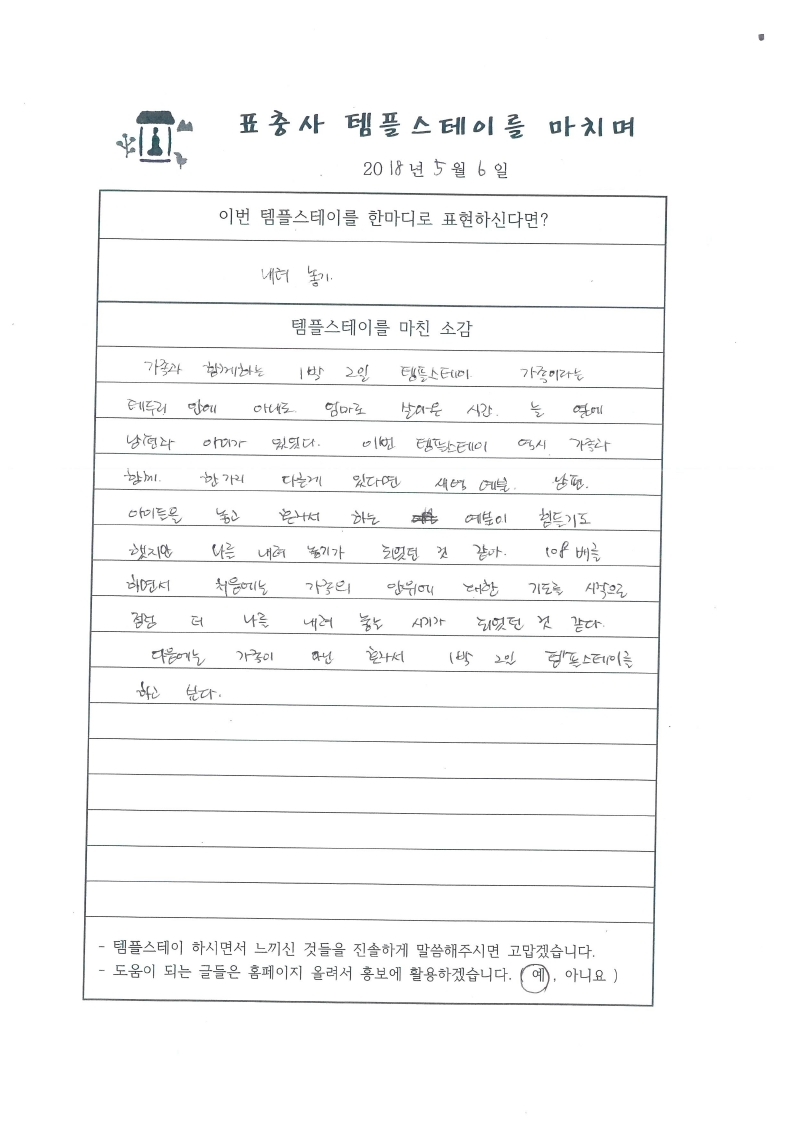 표충사 템플스테이를 마치며
2018년 5월 6일
이번 템플스테이를 한마디로 표현하신다면?
내려 놓기.
템플스테이를 마친 소감
가족과 함께하는 1박 2일 템플스테이. 가족이라는
테두리 안에 아내로 엄마로 살아온 시간. 늘 옆에
남편과 아이가 있었다. 이번 템플스테이 역시 가족과
함께. 한가지 다른게 있다면 새벽 예불. 남편.
아이들을 놓고 혼자서 하는 예불이 힘들기도
했지만 나를 내려 놓기가 되었던 것 같아. 108배를
하면서 처음에는 가족의 안위에 대한 기도를 시작으로
점점 더 나를 내려 놓는 시기가 되었던 것 같다.
다음에는 가족이 아닌 혼자서 1박 2일 템플스테이를
하고 싶다.
- 템플스테이 하시면서 느끼신 것들을 진솔하게 말씀해주시면 고맙겠습니다.
- 도움이 되는 글들은 홈페이지 올려서 홍보에 활용하겠습니다. ( 예 , 아니요 )